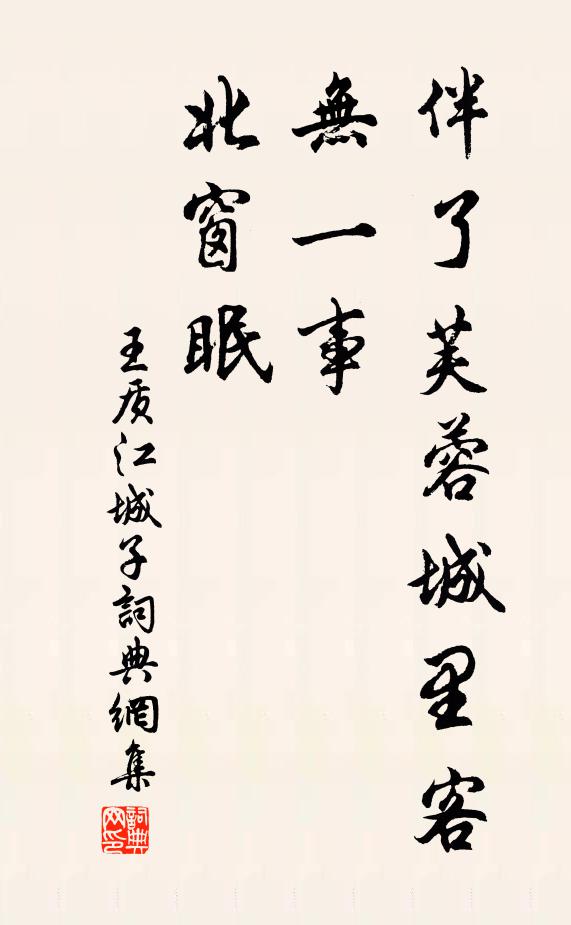 伴了芙蓉城里客
無一事
北窗眠
王质江城子詞典網集
詞典网印